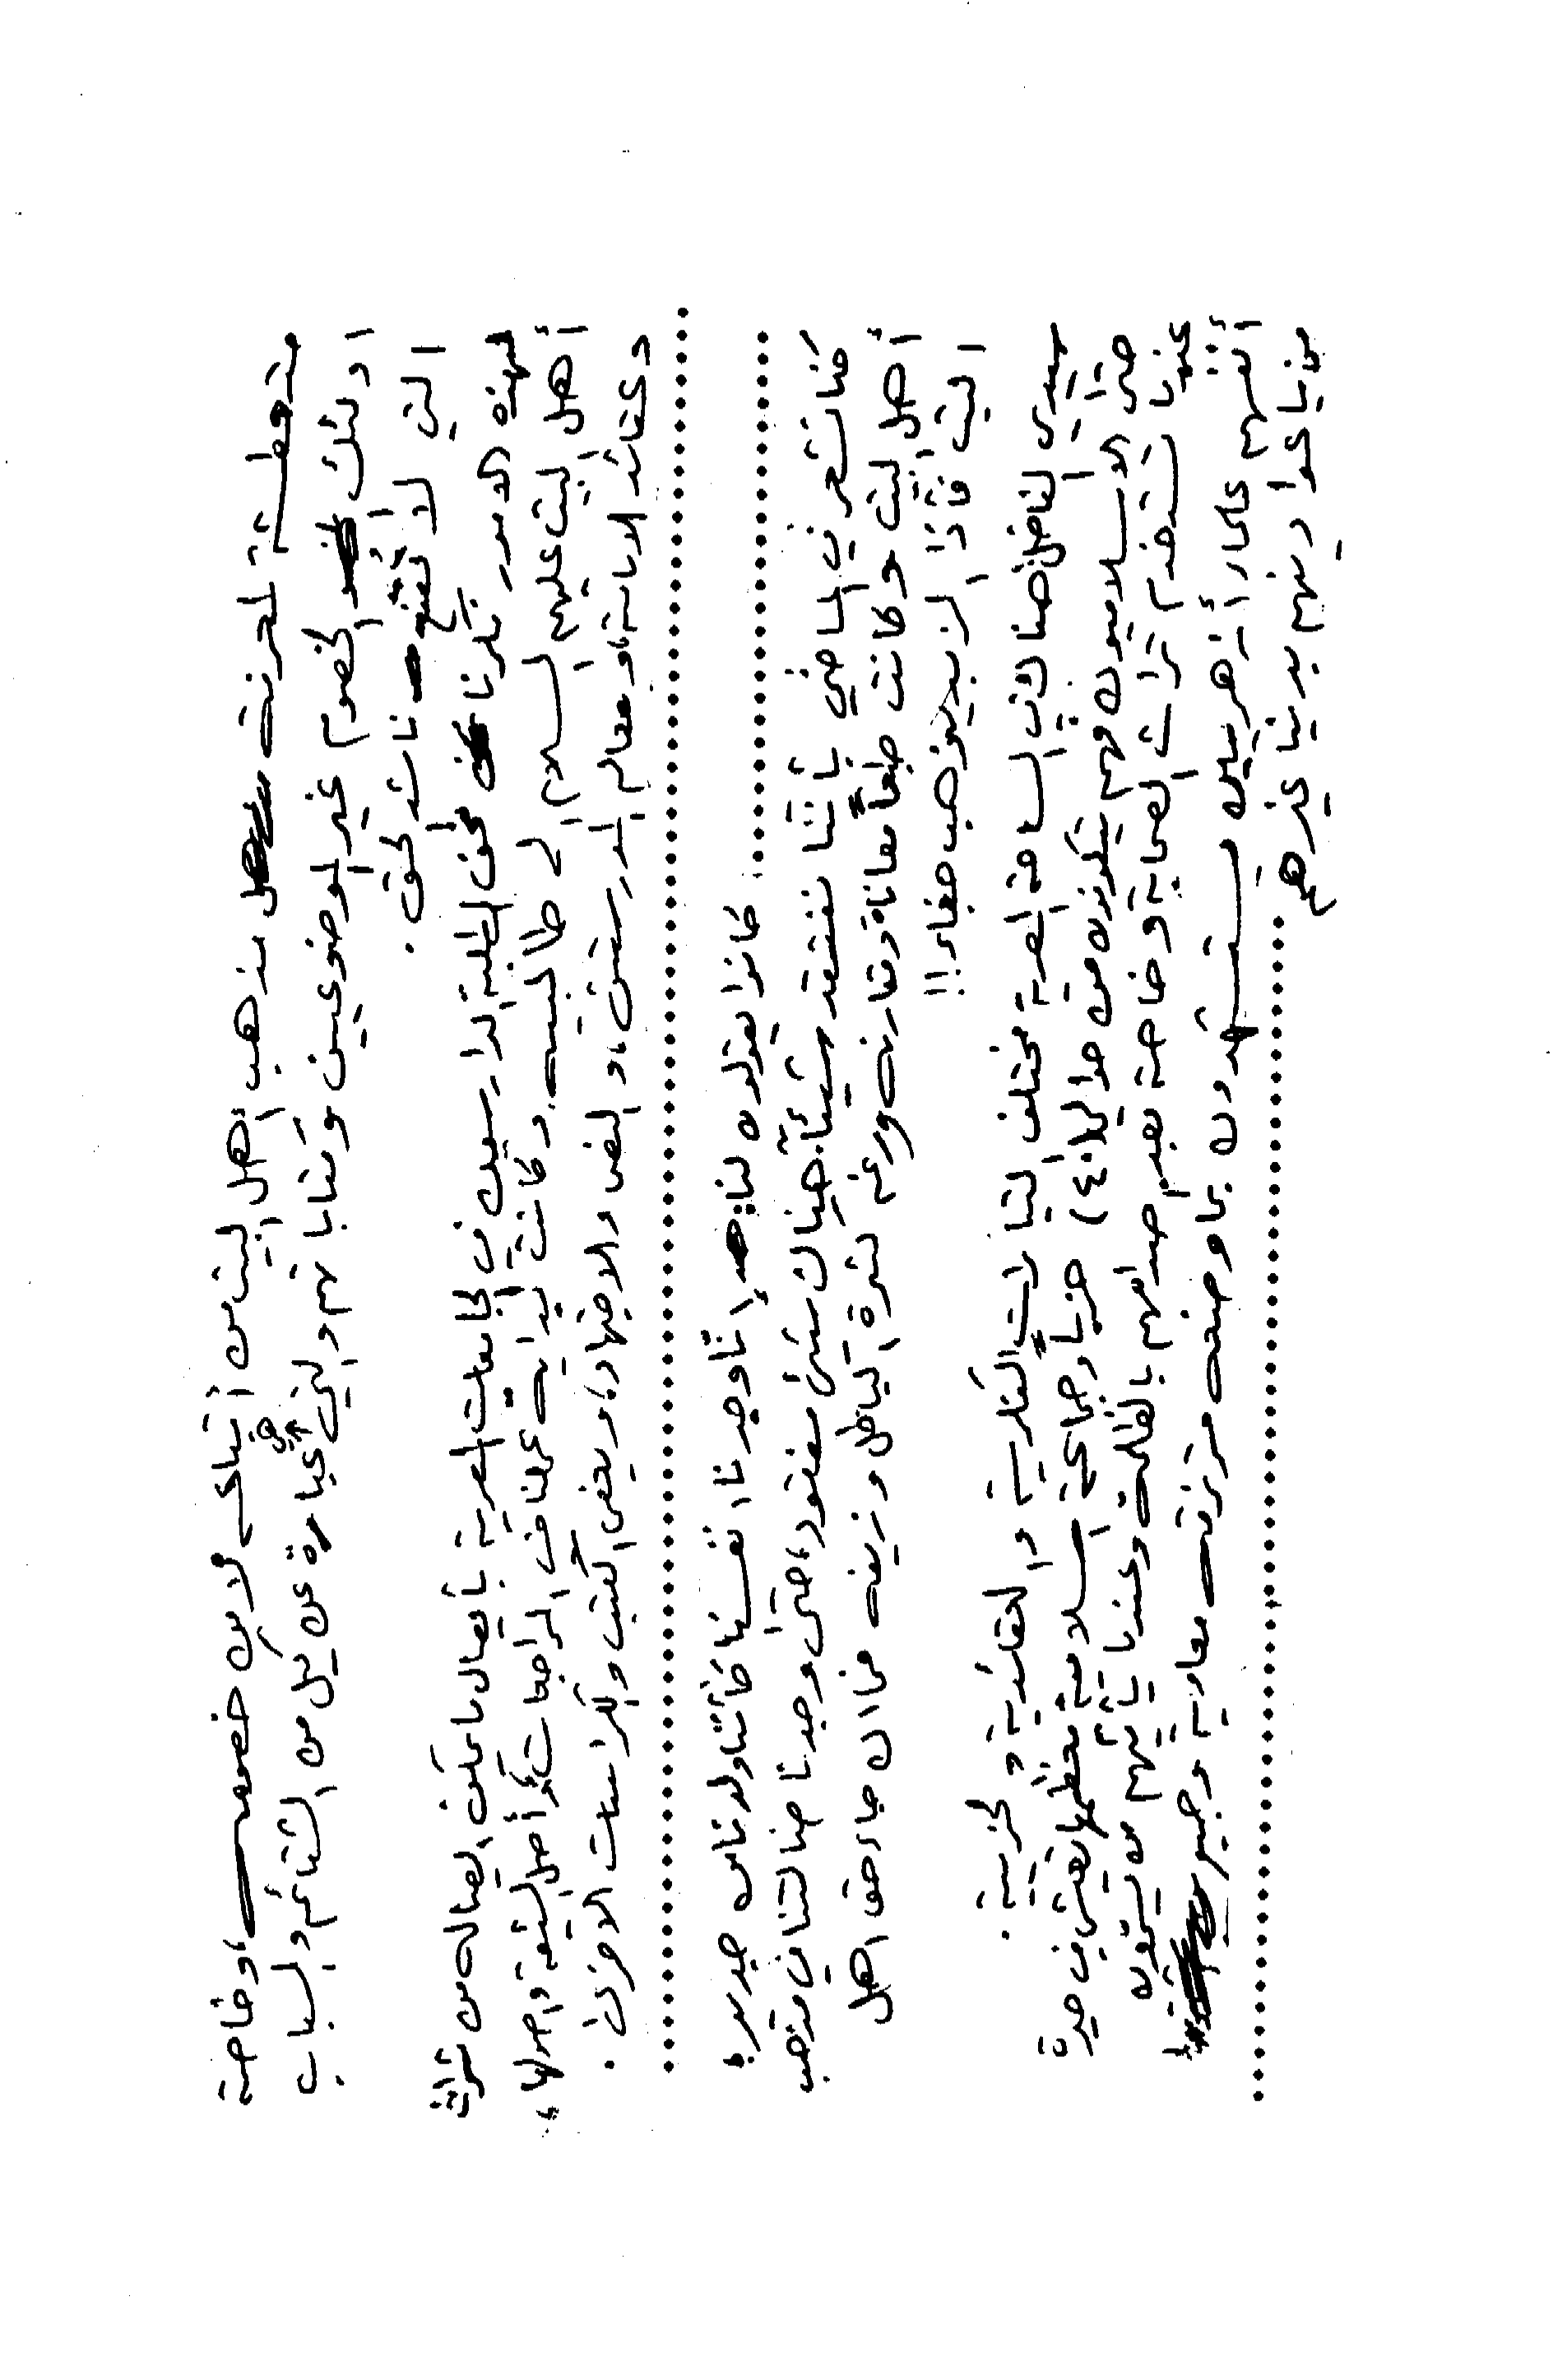 متعطشة لمعرفة مذهب أهل البيت من أتباعه لا من خصومه، وخاصة
اولئك الخصوم غير الموضوعيين وكتاباتهم والتي هي عبارة عن كيل من الشتائم والسباب
التي لا تُقنع ناشد لحق.
لهذه الامور بكرنا نحن الطلبة الدارسين في الجامعات المصرية بأيصال ما يمكن ايصاله من تراث
أهل البيت عليهم السلام الى طالبيه، وكانت البداية عملنا في المراجعات، وأصل الشيعة واصولها،
وعقائد الامامية، ومعالم المدرستين، والنص والاجتهاد، وبعض الكتب والكراسات الاخرى.
كانوا يقولون لنا: إنّا وجدنا انفسنا كأننا ولدنا من جديد؛
كنا نشعر في الماضي بأننا نفتقد شيئاً، هناك شئ مفقود، حتى وجدنا ضالتنا في مذهب
أهل البيت وكانت طبعاً معاناة ومقارنة ورغم كثرة الباطل وزيفه فما ان جاء حق اهل
البيت فأذا الزبد يذهب جفاء!!
سيدي الفاضل هناك في الساحة المصرية مختلف التيارات الفكرية والعقائدية والحزبية.
حتى الاسلاميون فهم يتكونون من حوالي (٤٠) حزباً وجماعة اسلامية معظمها تعيش في حيرة
عندما تستخدم تراث الصحابة وخاصة بعد صدامهم بالظلمة وعندما يأتيهم من يسمون
أنفسهم علماء أزهريين يستشهدون بما وضعه مرتزقة معاوية وجيوب
من باعوا دينهم بدنيا غيرهم